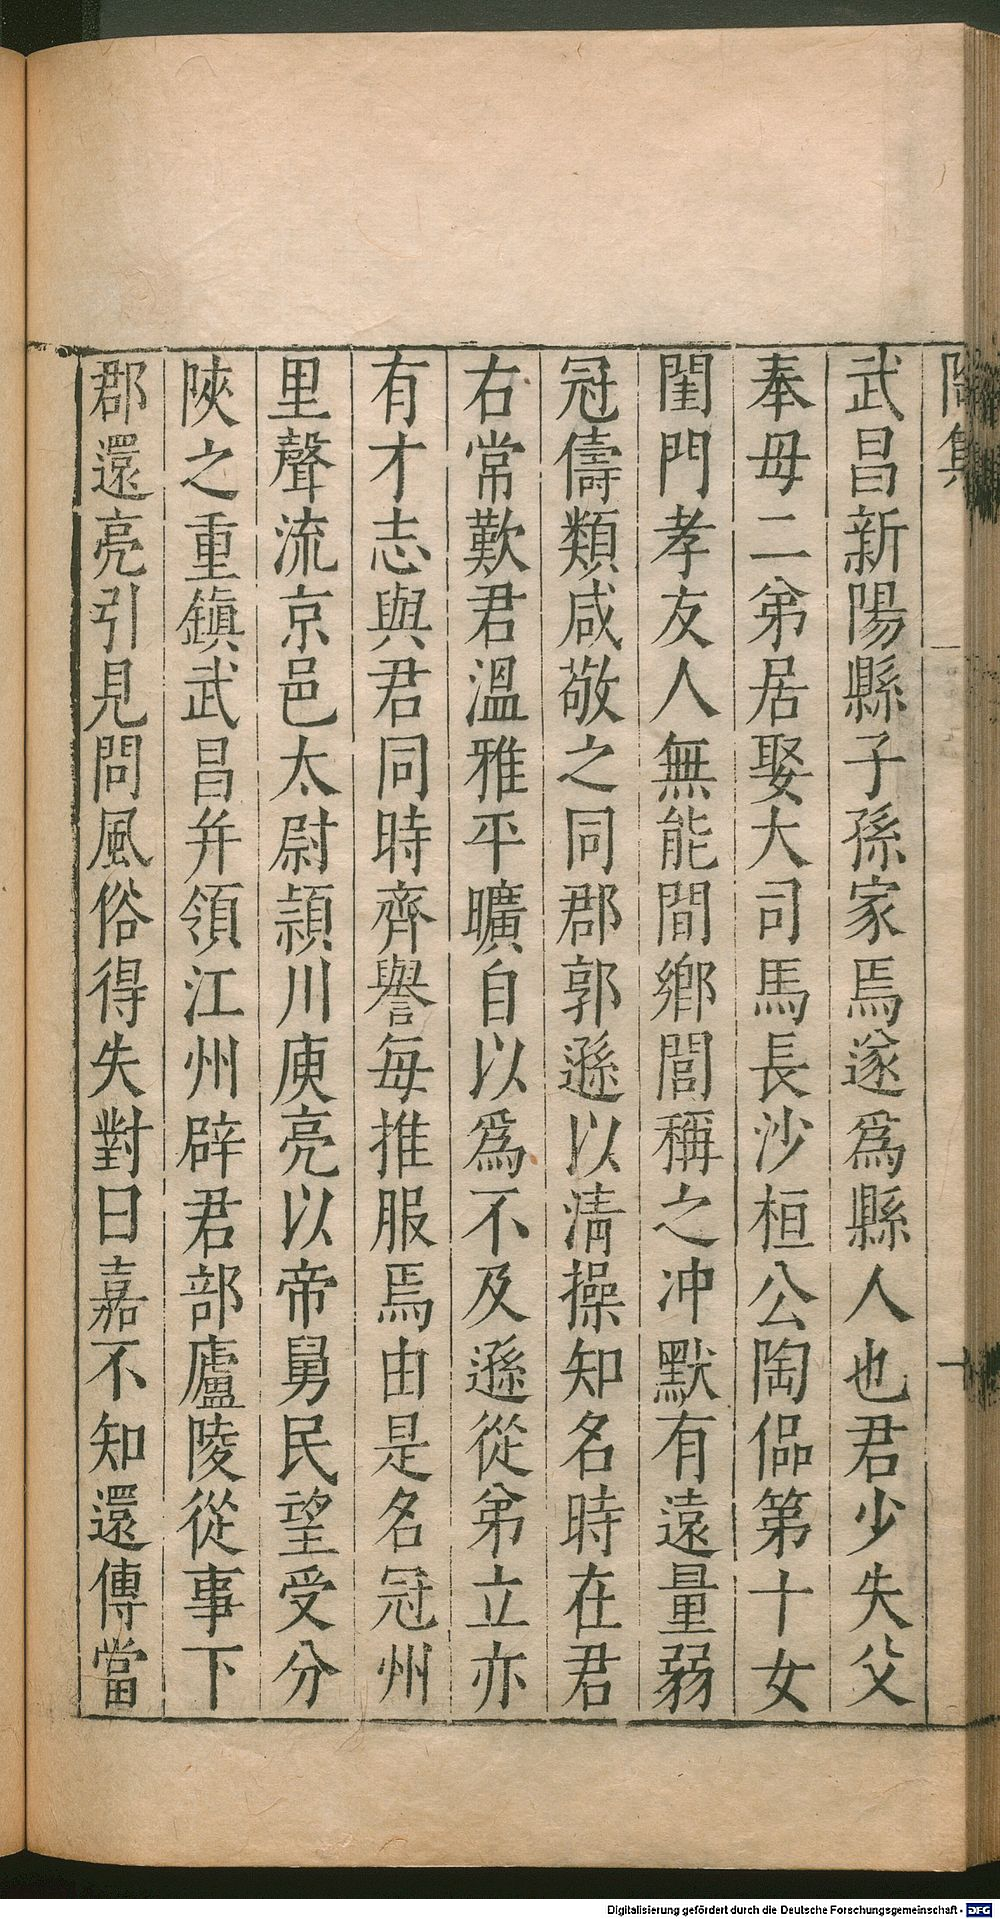 陶集
武昌新陽縣子孫家焉遂爲縣人也君少失父
奉母二弟居娶大司馬長沙桓公陶侃第十女
閨門孝友人無能間鄉閭稱之冲默有遠量弱
冠儔類咸敬之同郡郭遜以清操知名時在君
右常歎君溫雅平曠自以爲不及遜從弟立亦
有才志與君同時齊譽每推服焉由是名冠州
里聲流京邑太尉潁川庾亮以帝舅民望受分
陜之重鎮武昌并領江州辟君部廬陵從事下
郡還亮引見問風俗得失對曰嘉不知還傳當
Digitalisierung gefördert durch die Deutsche Forschungsgemeinschaft - DFG